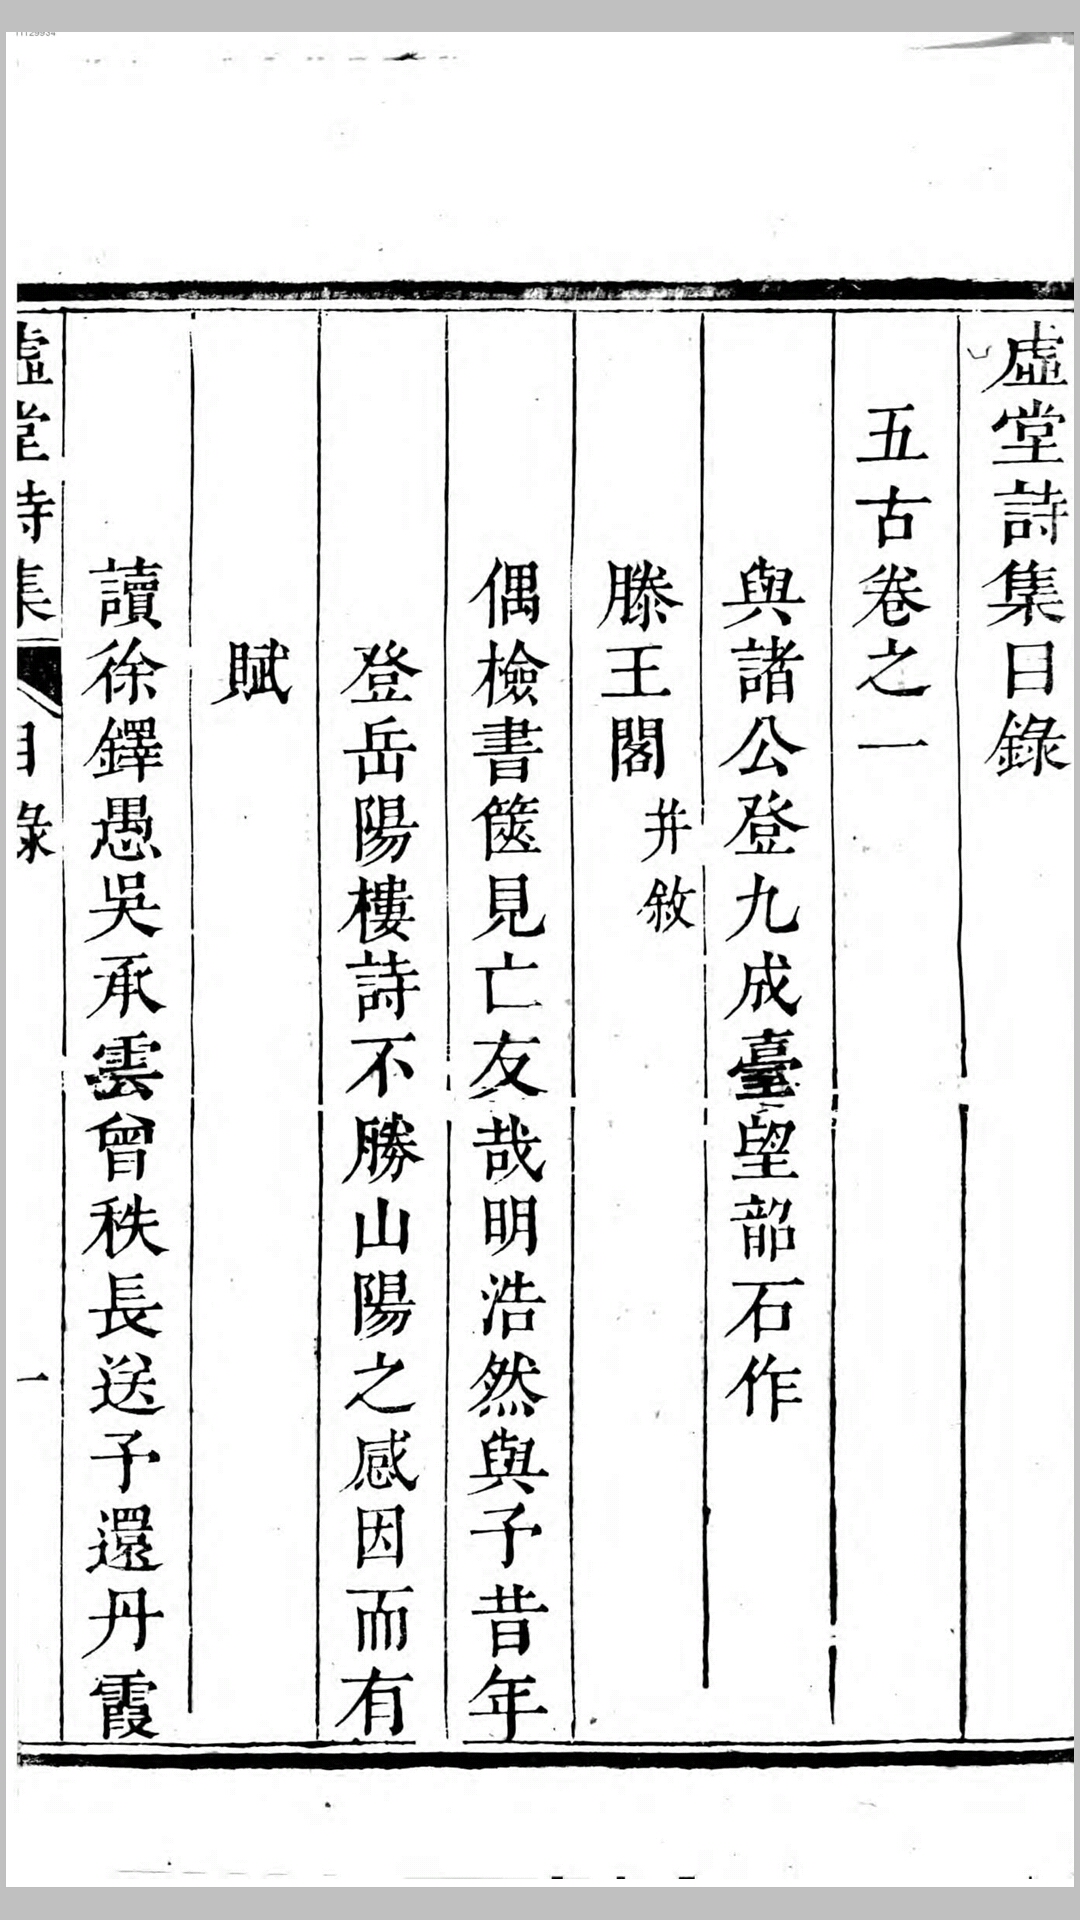 虛堂詩集目錄
五古卷之一
與諸公登九成臺望韶石作
滕王閣并敘
偶檢書篋見亡友哉明浩然與予昔年
登岳陽樓詩不勝山陽之感因而有
賦
讀徐鐸愚吳承雲曾秩長送予還丹霞
虛堂詩集 目錄 一
11129934